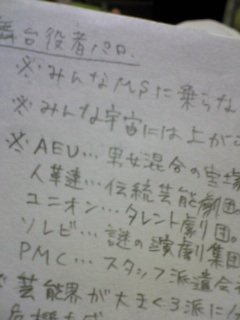 舞台役者パロ.
※みんなMSに乗らな
※みんな宇宙には上がら
※AEU…男女混合の宝塚
人革連…伝統芸能劇団
ユニオン…タレント劇団。
ソレビ…謎の演劇集団
PMC…スタッフ派遣会社
※芸能界が大きく3派に